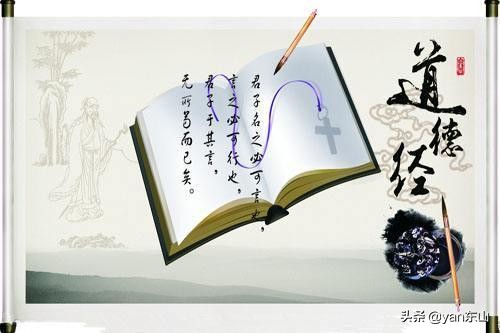 道德经
君子名之必可言也，
言之必可行也，
君子于其言，
无所苟而已矣。
头条 @yan东山